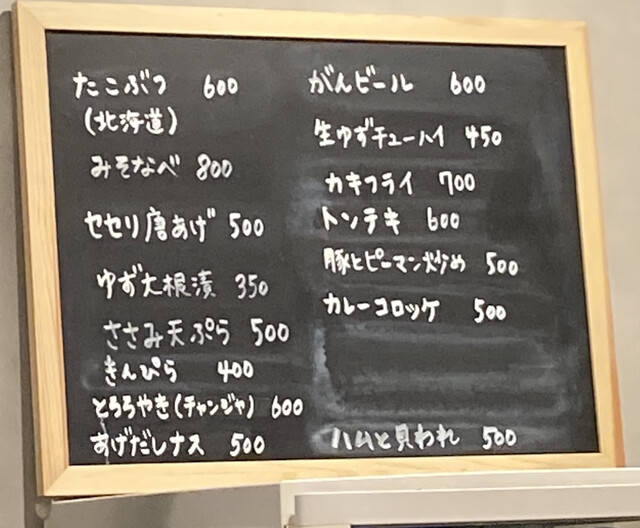 たこぶつ 600
(北海道)
みそなべ 800
セセリ唐あげ 500
ゆず大根漬 350
ささみ天ぷら 500
きんぴら 400
とろろやき(チャンジャ) 600
あげだしナス 500
がんビール 600
生ゆずチューハイ 450
カキフライ 700
トンテキ 600
豚とピーマン炒め 500
カレーコロッケ 500
ハムと貝われ 500